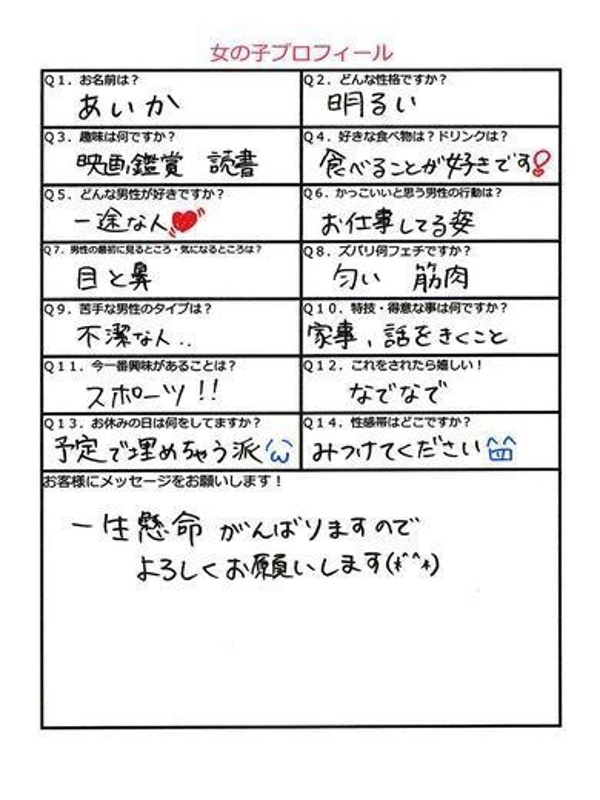 女の子プロフィール
Q1．お名前は？
あいか
Q2．どんな性格ですか？
明るい
Q3．趣味は何ですか？
映画鑑賞　読書
Q4．好きな食べ物は？ドリンクは？
食べることが好きです!
Q5．どんな男性が好きですか？
一途な人❤
Q6．かっこいいと思う男性の行動は？
お仕事してる姿
Q7．男性の最初に見るところ・気になるところは？
目と鼻
Q8．ズバリ何フェチですか？
匂い　筋肉
Q9．苦手な男性のタイプは？
不潔な人..
Q10．特技・得意な事は何ですか？
家事、話をきくこと
Q11．今一番興味があることは？
スポーツ!!
Q12．これをされたら嬉しい！
なでなで
Q13．お休みの日は何をしてますか？
予定で埋めちゃう派
Q14．性感帯はどこですか？
みつけてください
お客様にメッセージをお願いします！
一生懸命がんばりますので
よろしくお願いします(*^^*)